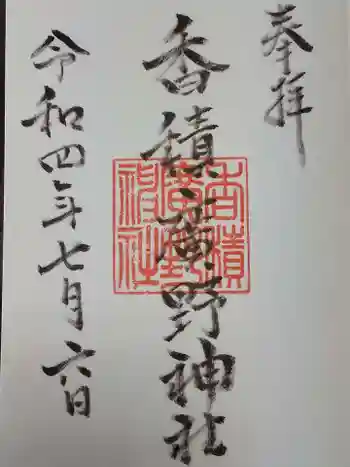 奉拝
香積廣野神社
令和四年七月六日
香積
廣野
神社